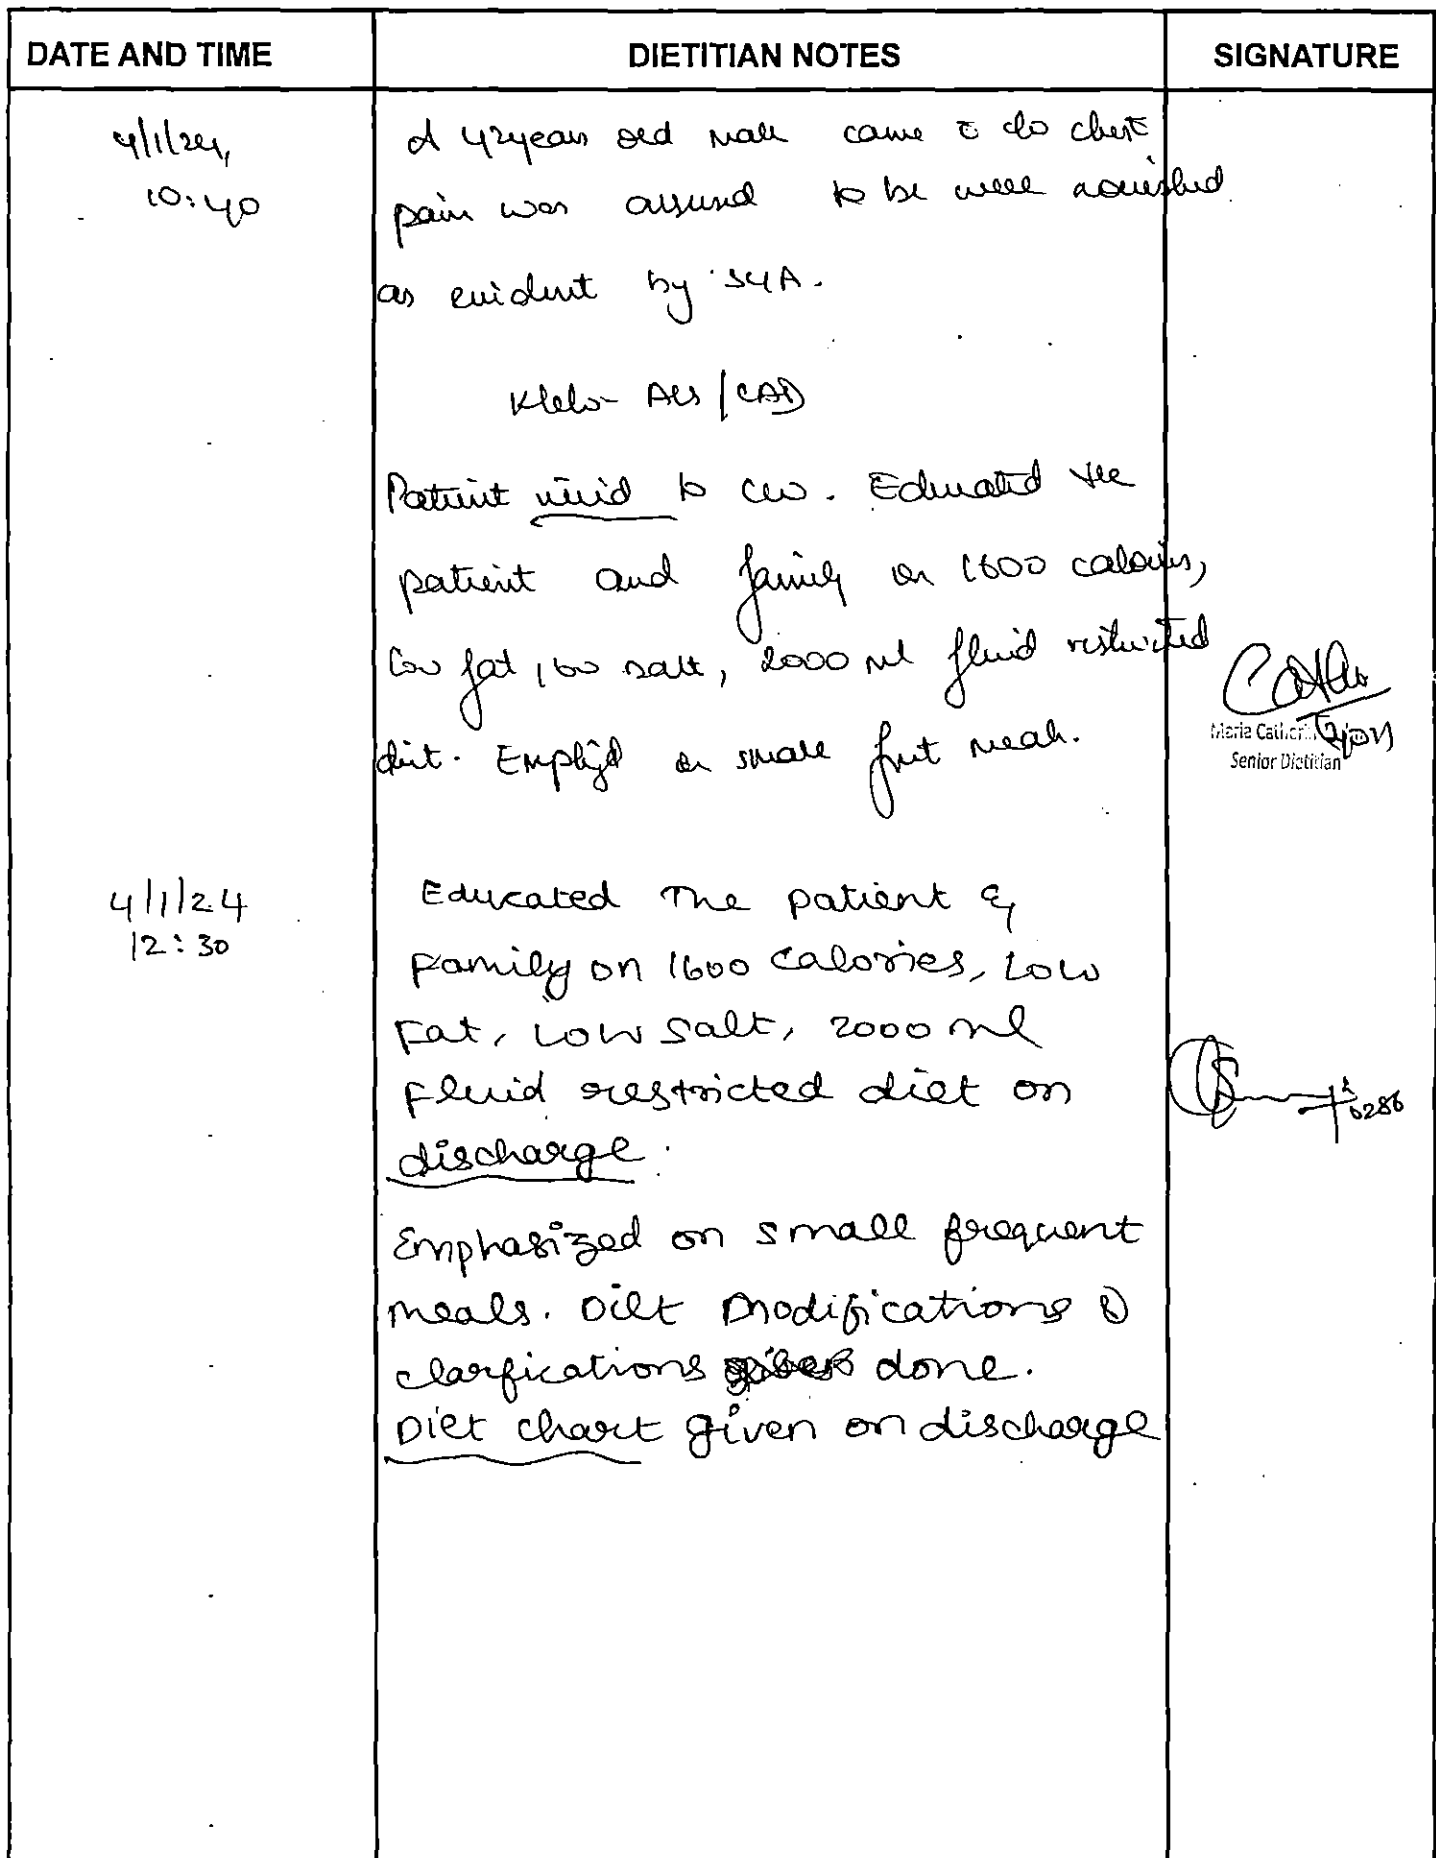 DATE AND TIME DIETITIAN NOTES SIGNATURE
4/1/24,
10:40
A 42years old male came c̄ c/o chest
pain was assessed to be well nourished
as evident by SGA.
K/c/o - ACS / CAD
Patient to . Educated the
patient and family on 1600 calories,
low fat, low salt, 2000 ml fluid restricted
diet. on small frqt meals.
Senior Dietitian
4/1/24
12:30
Educated The patient &
Family on 1600 calories, Low
Fat, Low salt, 2000 ml
Fluid restricted diet on
discharge.
Emphasized on small frequent
meals. Diet Modifications &
clarfications done.
Diet chart given on discharge